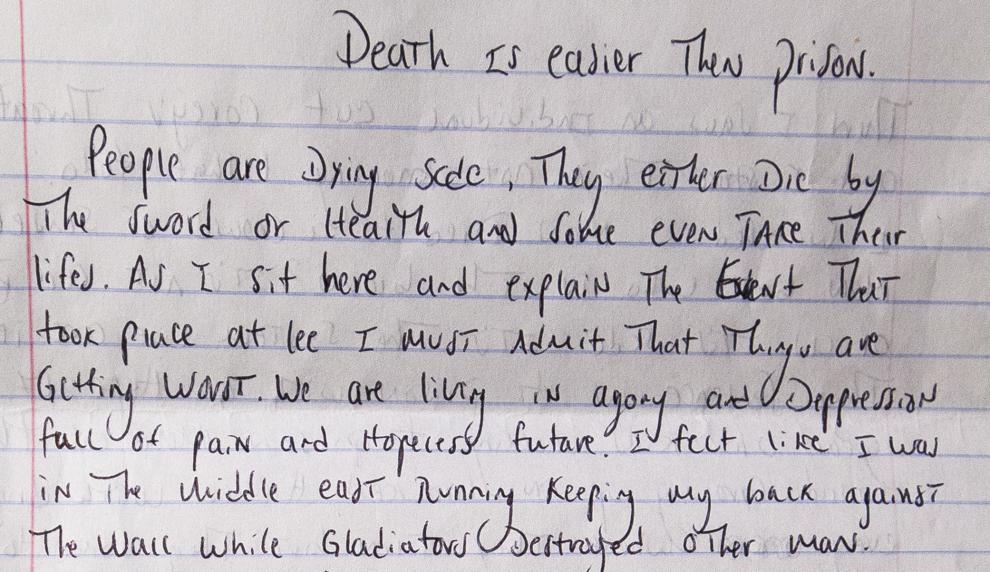 Death is easier Then prison.
People are Dying scdc, They either Die by
The sword or Health and some even TAKE Their
lifes. As I sit here and explain The Event That
took place at lee I must Admit That Things are
Getting Worst. We are living in agony and Deppression
full of pain and Hopeless future. I felt like I was
in The middle east Running Keeping my back against
The wall while Gladiators Destroyed other man.